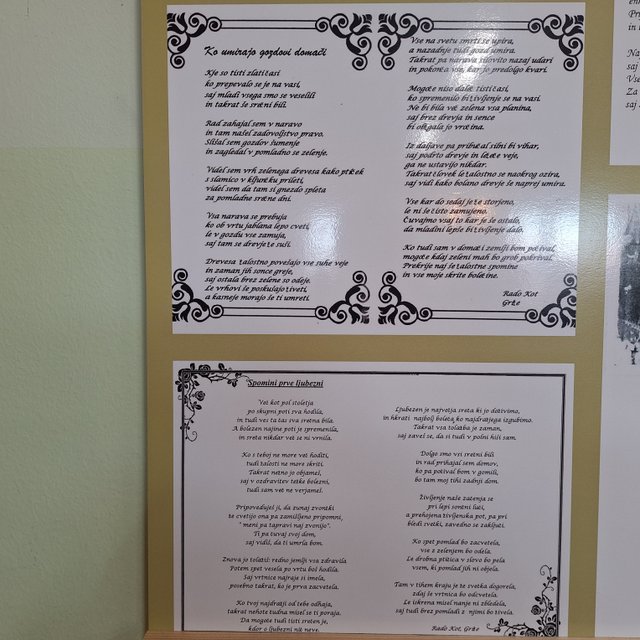 Ko umirajo gozdovi domači
Kje so tisti zlati časi
ko prepevalo se je na vasi,
saj mladi vsega smo se veselili
in takrat še srečni bili.
Rad zahajal sem v naravo
in tam našel zadovoljstvo pravo.
Slišal sem gozdov šumenje
in zagledal v pomladno se zelenje.
Videl sem vrh zelenega drevesa kako ptiček
s slamico v kljunčku prileti,
videl sem da tam si gnezdo spleta
za pomladne srečne dni.
Vsa narava se prebuja
ko ob vrtu jablana lepo cveti,
le v gozdu vse zamuja,
saj tam se drevje že suši.
Drevesa žalostno povešajo vse suhe veje
in zaman jih sonce greje,
saj ostala brez zelene so odeje.
Le vrhovi še poskušajo živeti,
a kasneje morajo še ti umreti.
Vse na svetu smrti se upira,
a nazadnje tudi gozd umira.
Takrat pa narava silovito nazaj udari
in pokonča vse, kar je predolgo kvari.
Mogoče niso daleč tisti časi,
ko spremenilo bi življenje se na vasi.
Ne bi bila več zelena vsa planina,
saj brez drevja in sence
bi obligala jo vročina.
Iz daljave pa pribučal silni bi vihar,
saj podrto drevje in ležeče veje,
ga ne ustavijo nikdar.
Takrat človek le žalostno se naokrog ozira,
saj vidi kako bolano drevje še naprej umira.
Vse kar do sedaj je že storjeno,
le ni še čisto zamujeno.
Čuvajmo vsaj to kar je še ostalo,
da mladini lepše bi življenje dalo.
Ko tudi sam v domači zemlji bom počival,
mogoče kdaj zeleni mah bo grob pokrival.
Prekrije naj še žalostne spomine
in vse moje skrite bolečine.
Rado Kot
Griže
Spomini prve ljubezni
Več kot pol stoletja
po skupni poti sva hodila,
in tudi ves ta čas sva srečna bila.
A bolezen najine poti je spremenila,
in sreča nikdar več se ni vrnila.
Ko s teboj ne morem več hoditi,
tudi žalosti ne more skriti.
Takrat nežno jo objamel,
saj v ozdravitev težke bolezni,
tudi sam več ne verjamel.
Pripoveduješ ji, da zunaj zvončki
že cvetijo ona pa zamišljeno pripomni,
" meni pa zapravi naj zvonijo".
Ti pa čuvaj svoj dom,
saj vidiš, da ti umrla bom.
Znova jo tolažiš: redno jemlji vsa zdravila
Potem spet vesela po vrtu boš hodila.
Saj vrtnice najraje si imela,
posebno takrat, ko je prva zacvetela.
Ko tvoj najdražji od tebe odhaja,
takrat nehote čudna misel se ti poraja.
Da mogoče tudi tisti srečen je,
kdor o ljubezni nič neve.
Ljubezen je največja sreča ki jo doživimo,
in hkrati najbolj boleča ko najdražjega izgubimo.
Takrat vsa tolažba je zaman,
saj zaveš se, da si tudi v polni hiši sam.
Dolgo smo vsi srečni bili
in rad prihajal sem domov,
ko pa počival bom v gomili,
bo tam moj tihi zadnji dom.
Življenje naše začenja se
pri lepi sončni luči,
a prehojena življenjska pot, pa pri
bledi svečki, zavedno se zaključi.
Ko spet pomlad bo zacvetela,
vse z zelenjem bo odela.
Le drobna ptičica v slovo bo pela
vsem, ki pomlad jih ni objela.
Tam v tihem kraju je že svečka dogorela,
zdaj še vrtnica bo odcvetela.
Le iskrena misel nanje ni zbledela,
saj tudi brez pomladi z njimi bo živela.
Rado Kot, Griže